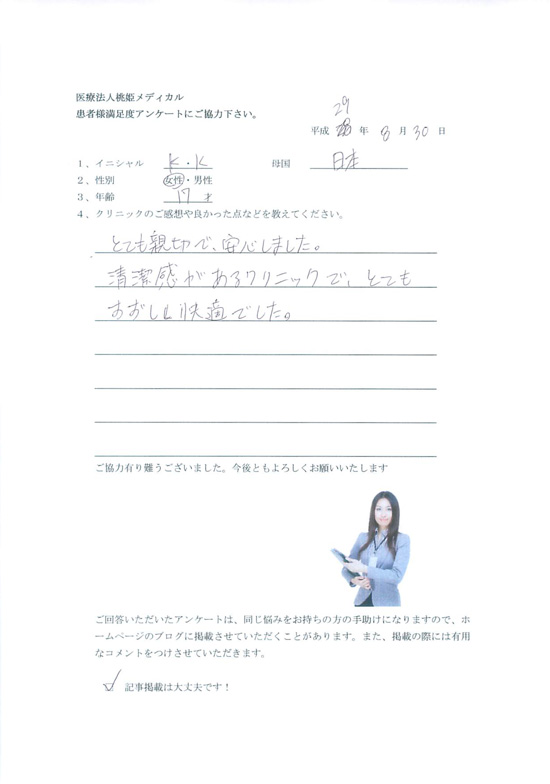 医療法人桃姫メディカル
患者様満足度アンケートにご協力下さい。
29
平成 年 8 月 30 日
1、イニシャル K・K 母国 日本
2、性別 女性・男性
3、年齢 17 才
4、クリニックのご感想や良かった点などを教えてください。
とても親切で、安心しました。
清潔感があるクリニックで、とても
快適でした。
ご協力有り難うございました。今後ともよろしくお願いいたします
ご回答いただいたアンケートは、同じ悩みをお持ちの方の手助けになりますので、ホ
ームページのブログに掲載させていただくことがあります。また、掲載の際には有用
なコメントをつけさせていただきます。
☑ 記事掲載は大丈夫です！